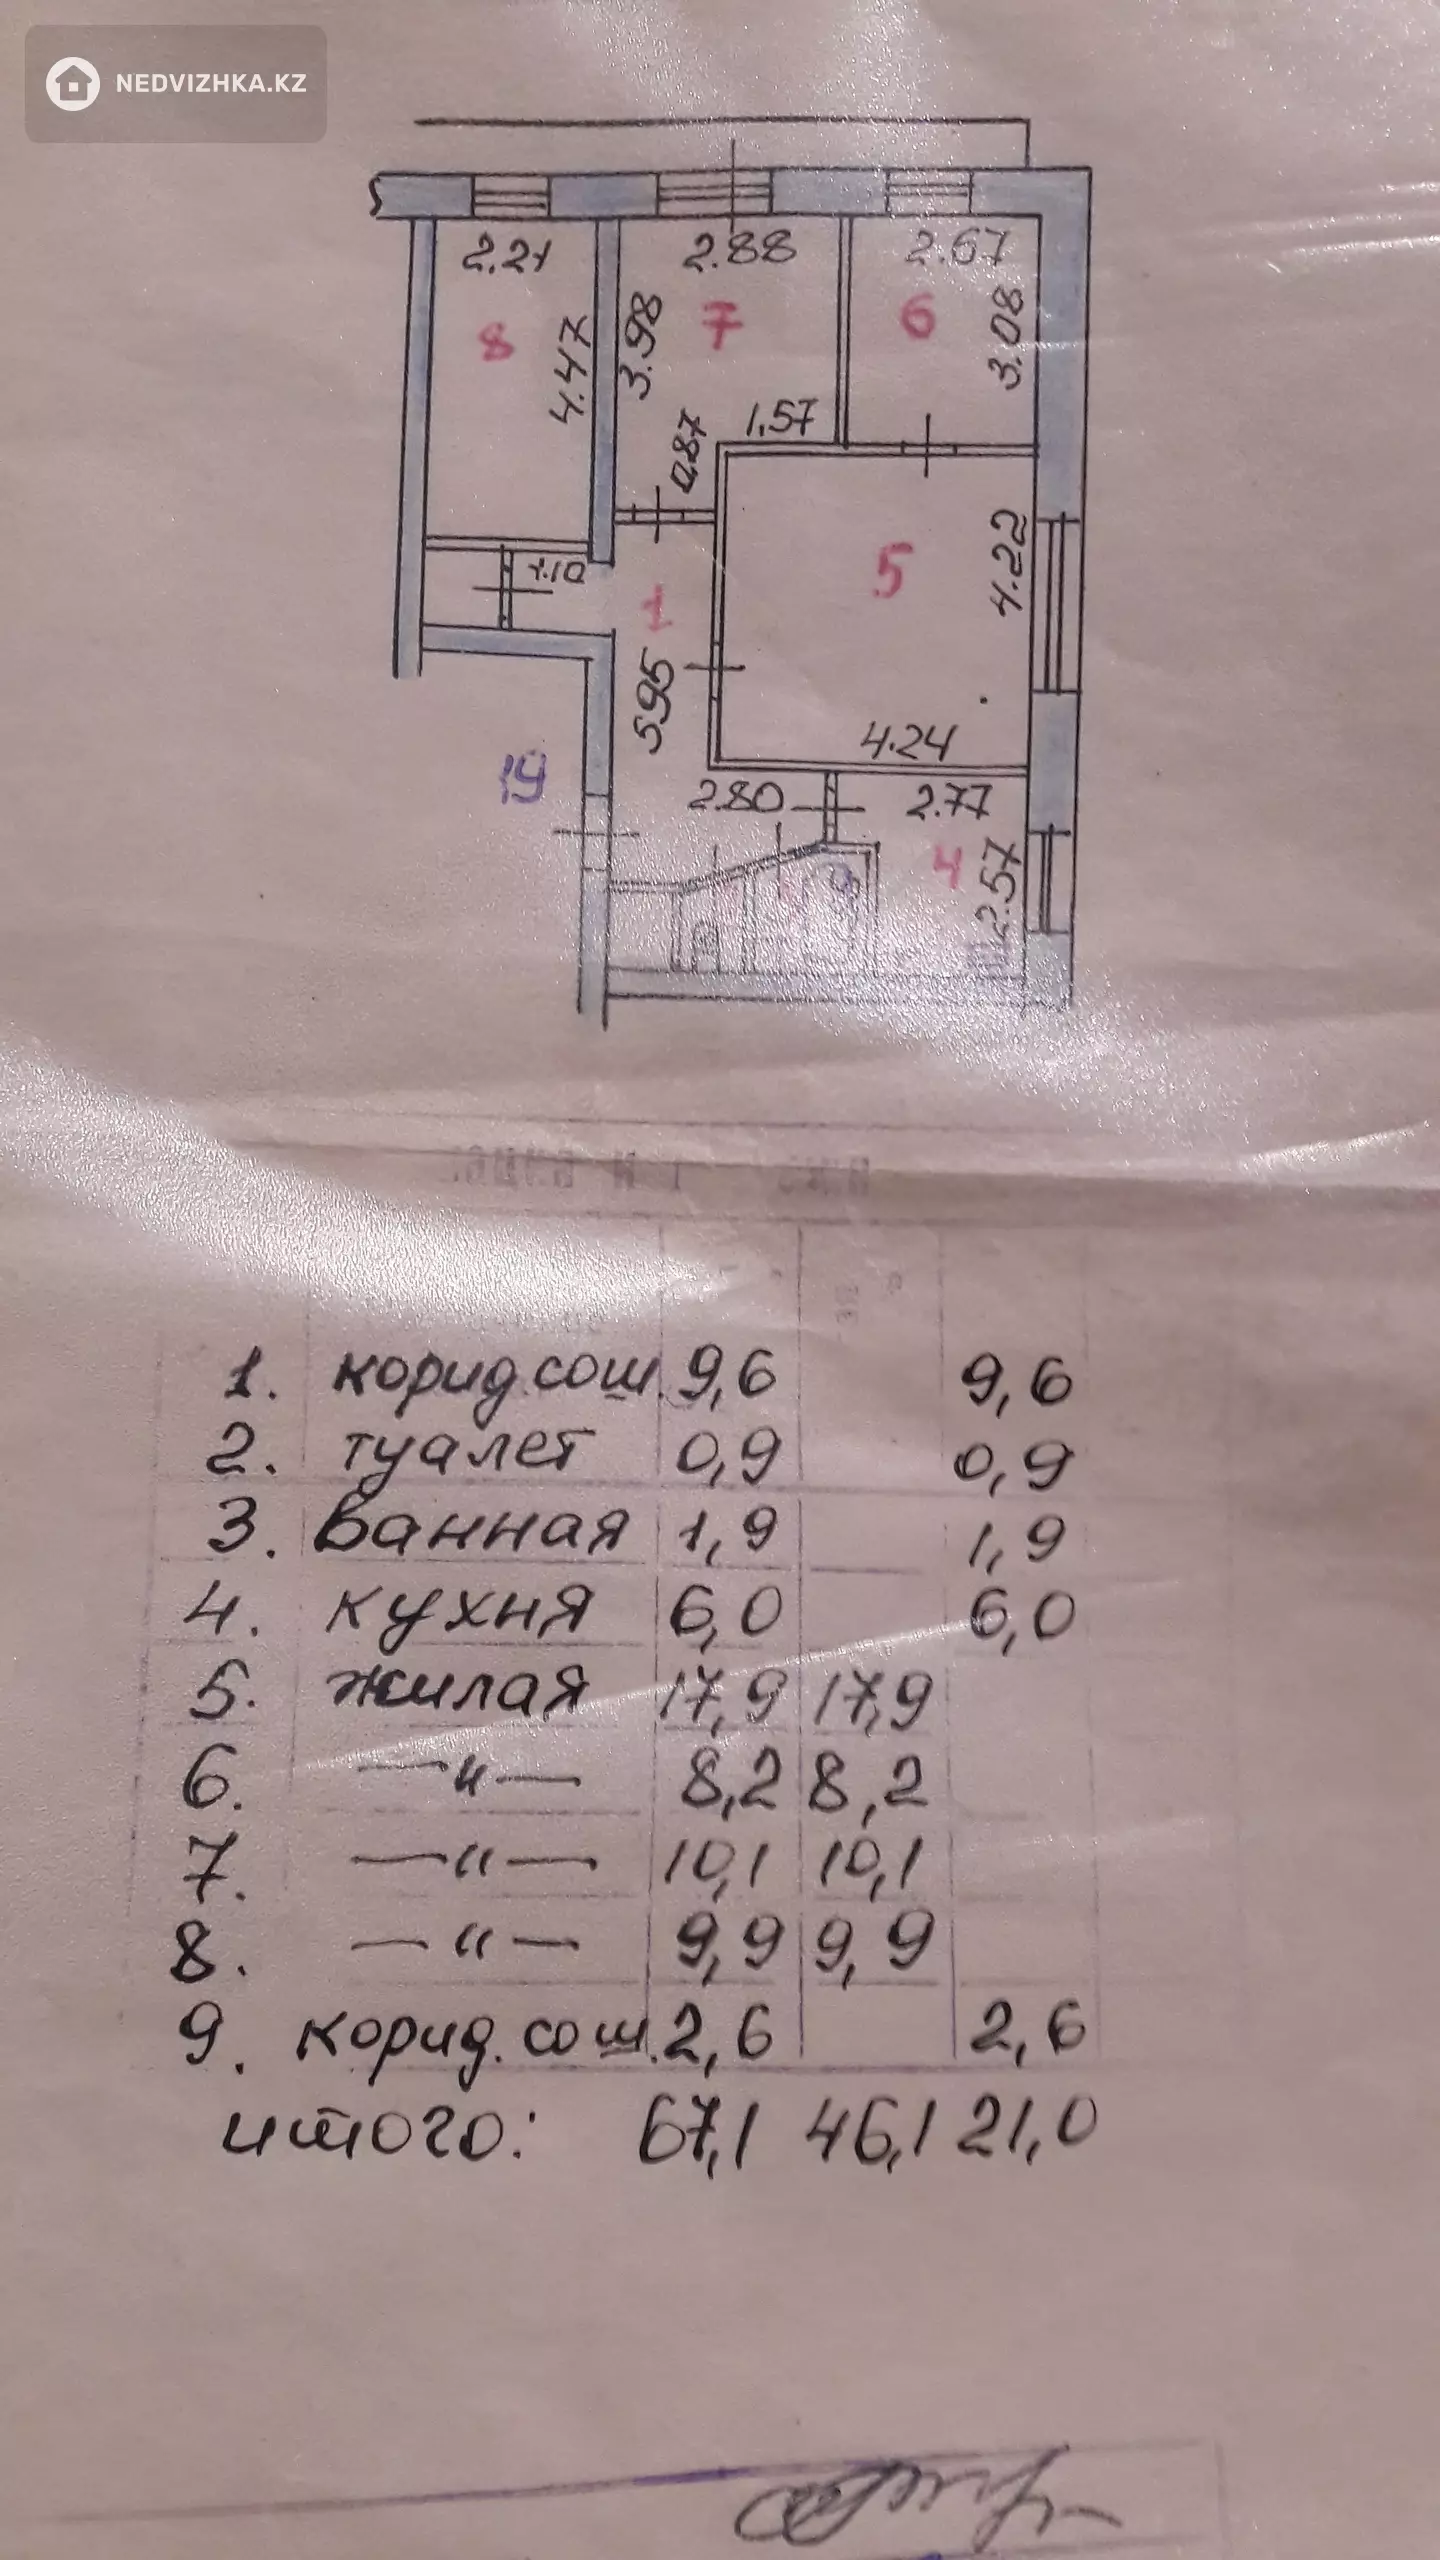 NEDVIZHKA.KZ
2.21
2.88
2.67
8
4.47
3.98
7
6
3.08
1.57
0.87
1.10
1
5
4.22
5.95
4.24
19
2.80
2.77
4
2.57
1. корид.сош. 9,6 9,6
2. туалет 0,9 0,9
3. ванная 1,9 1,9
4. кухня 6,0 6,0
5. жилая 17,9 17,9
6. —"— 8,2 8,2
7. —"— 10,1 10,1
8. —"— 9,9 9,9
9. корид.сош. 2,6 2,6
итого: 67,1 46,1 21,0